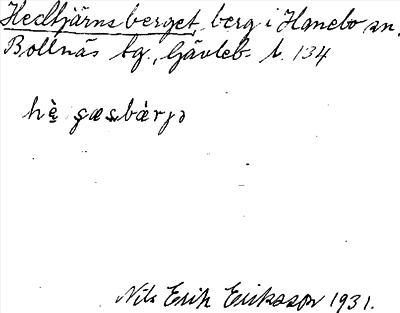 Hedtjärnsberget, berg i Hanebo sn,
Bollnäs tg., Gävleb. l. 134
hè̱ ɡæsbàrjə
Nils Erik Eriksson 1931.